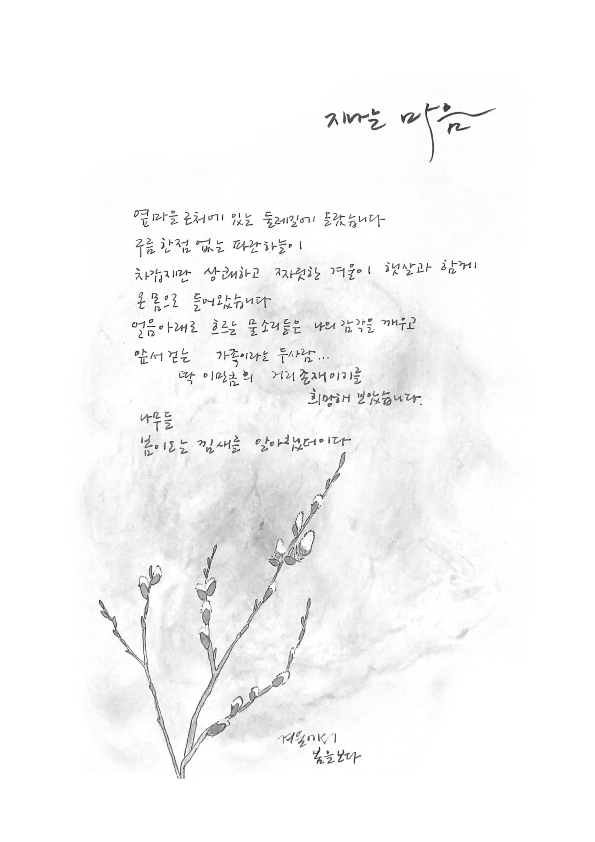 지나는 마음
옆마을 근처에 있는 둘레길에 들렀습니다
구름 한점 없는 파란하늘이
차갑지만 상쾌하고 짜릿한 겨울이 햇살과 함께
온 몸으로 들어왔습니다
얼음아래로 흐르는 물소리들은 나의 감각을 깨우고
앞서 걷는 가족이라는 두사람...
딱 이만큼의 거리 존재이기를
희망해 보았습니다.
나무들
봄이오는 낌새를 알아챘더이다
겨울에서
봄을보다